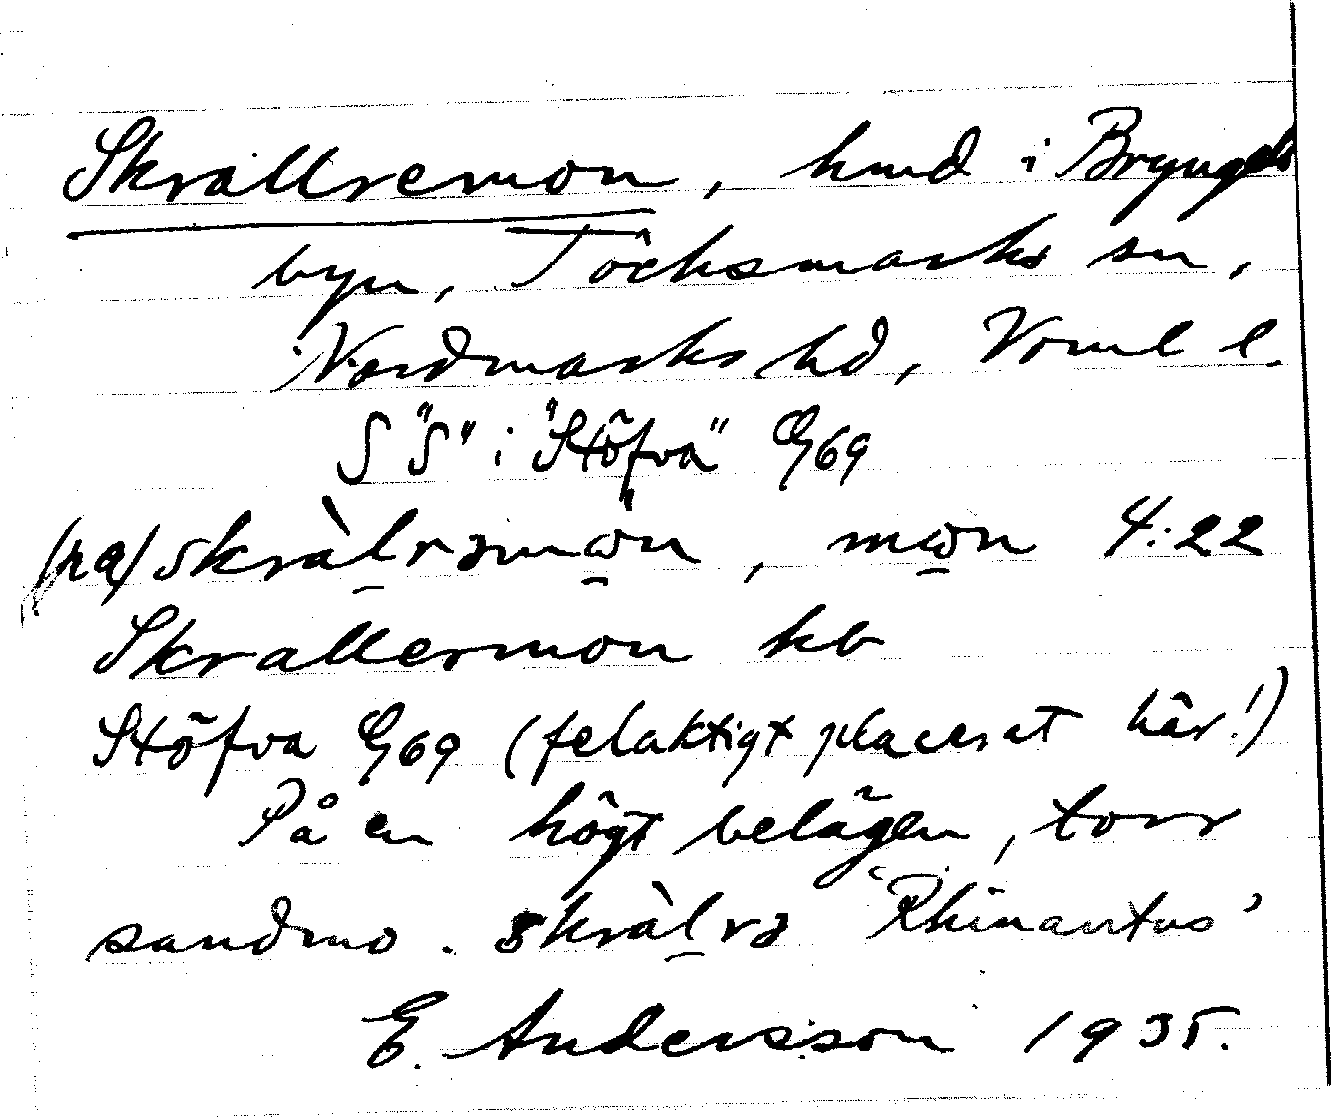 Skrallremon, hmd i Bryngels
byn, Töcksmarks sn,
Nordmarks hd, Vrml l.
S "S" i "Stöfva" G69
(på) skràlrəmo̯n, mo̯n 4:22
Skrallermon kb
Stöfva G69 (felaktigt placerat här!)
På en högt belägen, torr
sandmo. skràlrə 'Rhinantus'
E. Andersson 1935.